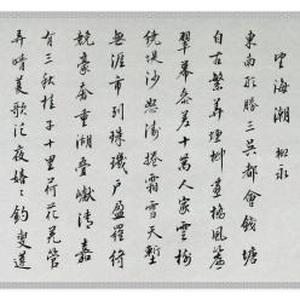 望海潮 柳永
東南形勝三吳都會錢塘
自古繁華煙柳畫橋風簾
翠幕參差十萬人家雲樹
繞堤沙怒濤捲霜雪天塹
無涯市列珠璣戶盈羅綺
競豪奢重湖疊巘清嘉
有三秋桂子十里荷花羌管
弄晴菱歌泛夜嬉嬉釣叟蓮